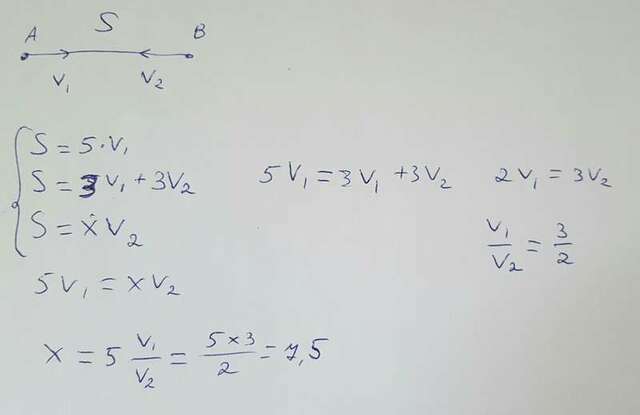 A S B
V₁ V₂
S = 5·V₁
S = 3V₁ + 3V₂ 5V₁ = 3V₁ + 3V₂ 2V₁ = 3V₂
S = xV₂ V₁/V₂ = 3/2
5V₁ = xV₂
x = 5 V₁/V₂ = 5×3/2 = 7,5